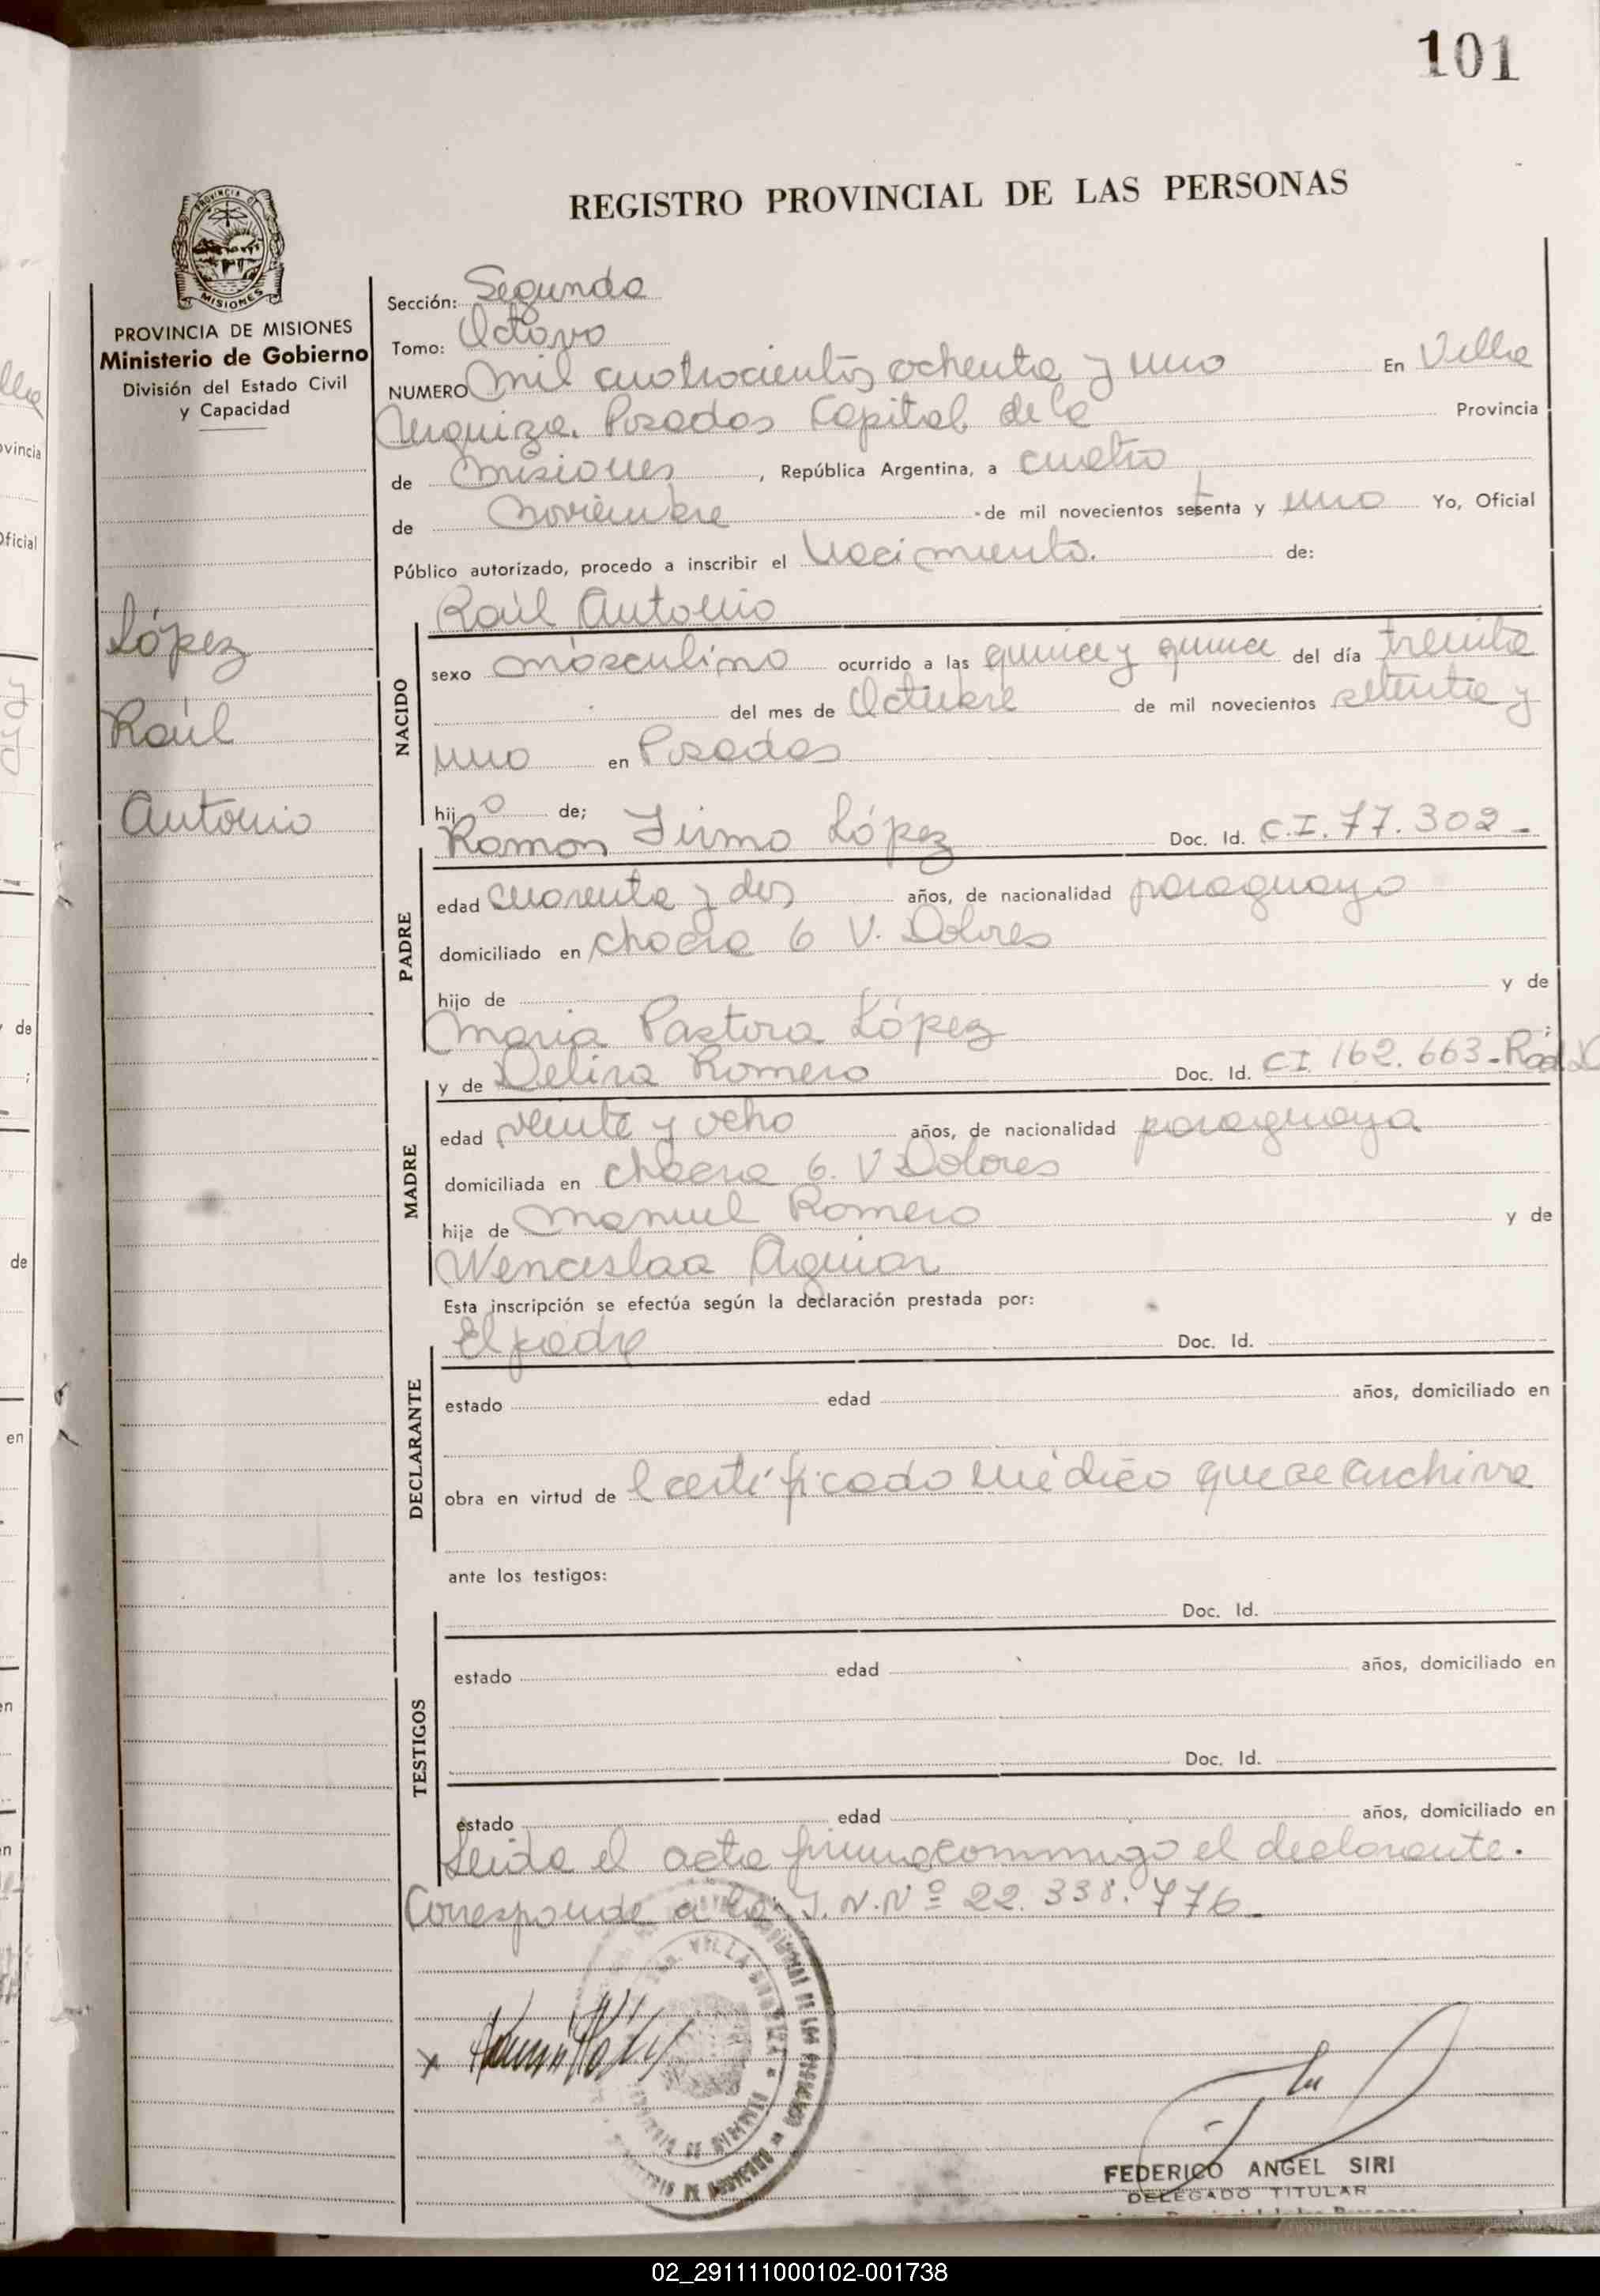 101
REGISTRO PROVINCIAL DE LAS PERSONAS
PROVINCIA
MISIONES
PROVINCIA DE MISIONES
Ministerio de Gobierno
División del Estado Civil
y Capacidad
López
Raúl
Antonio
Sección: Segunda
Tomo: Octavo
NUMERO mil cuatrocientos ochenta y uno En Villa
Urquiza. Posadas Capital de la Provincia
de Misiones, República Argentina, a cuatro
de Noviembre de mil novecientos setenta y uno Yo, Oficial
Público autorizado, procedo a inscribir el Nacimiento. de:
Raúl Antonio
NACIDO
sexo másculino ocurrido a las quince y quince del día treinta
del mes de Octubre de mil novecientos setenta y
uno en Posadas
hijo de;
Ramon Firmo López Doc. Id. C.I. 77.302.-
PADRE
edad cuarenta y dos años, de nacionalidad paraguayo
domiciliado en chacra 6 V. Dolores
hijo de y de
Maria Pastora López ;
y de Delira Romero Doc. Id. CI. 162.663-
MADRE
edad veinte y ocho años, de nacionalidad paraguaya
domiciliada en chacra 6. V Dolores
hija de Manuel Romero y de
Wenceslaa Aguiar
Esta inscripción se efectúa según la declaración prestada por:
El padre Doc. Id.
DECLARANTE
estado edad años, domiciliado en
obra en virtud de l certificado médico que se archiva
ante los testigos:
Doc. Id.
TESTIGOS
estado edad años, domiciliado en
Doc. Id.
estado edad años, domiciliado en
Leida el acta firma conmigo el declarante.
Corresponde a la: I.N.Nº 22.338.776-
FEDERICO ANGEL SIRI
DELEGADO TITULAR
02_291111000102-001738